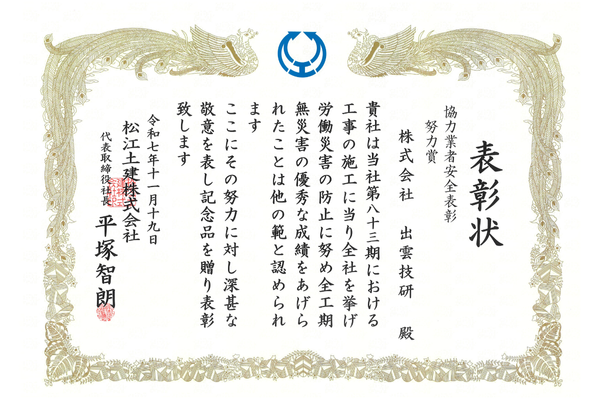 表彰状
協力業者安全表彰
努力賞
株式会社 出雲技研 殿
貴社は当社第八十三期における
工事の施工に当り全社を挙げ
労働災害の防止に努め全工期
無災害の優秀な成績をあげら
れたことは他の範と認められ
ます
ここにその努力に対し深甚な
敬意を表し記念品を贈り表彰
致します
令和七年十一月十九日
松江土建株式会社
代表取締役社長 平塚智朗